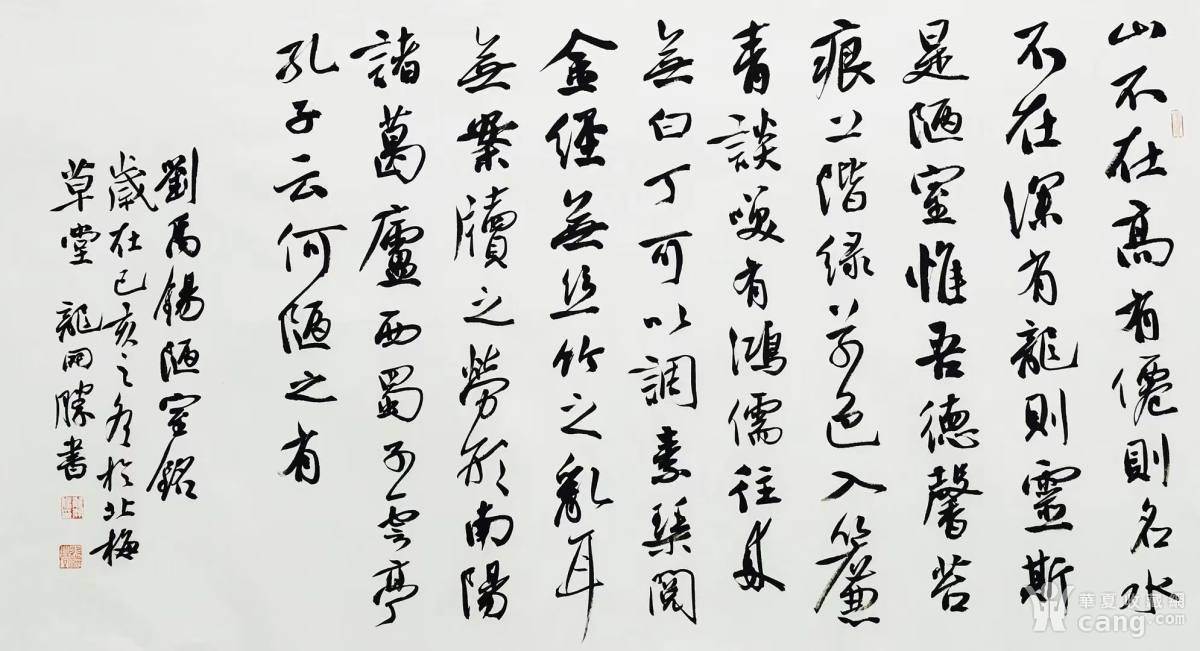 山不在高有僊則名水
不在深有龍則靈斯
是陋室惟吾德馨苔
痕上階绿草色入簾
青談笑有鴻儒往来
無白丁可以調素琴閲
金經無丝竹之亂耳
無案牘之勞形南陽
諸葛廬西蜀子雲亭
孔子云何陋之有
劉禹錫陋室銘
歲在己亥之冬於北梅
草堂 龍開勝書
華夏收藏網
cang.com